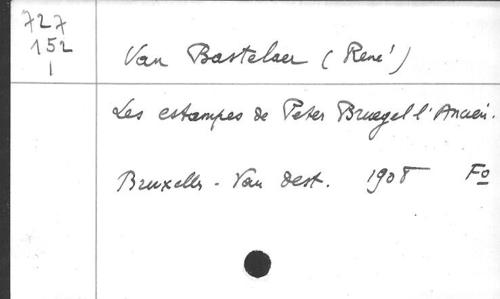 727
152
1
Van Bastelaer (René)
Les estampes de Peter Bruegel l'Ancien.
Bruxelles - Van Oest. 1908 Fo